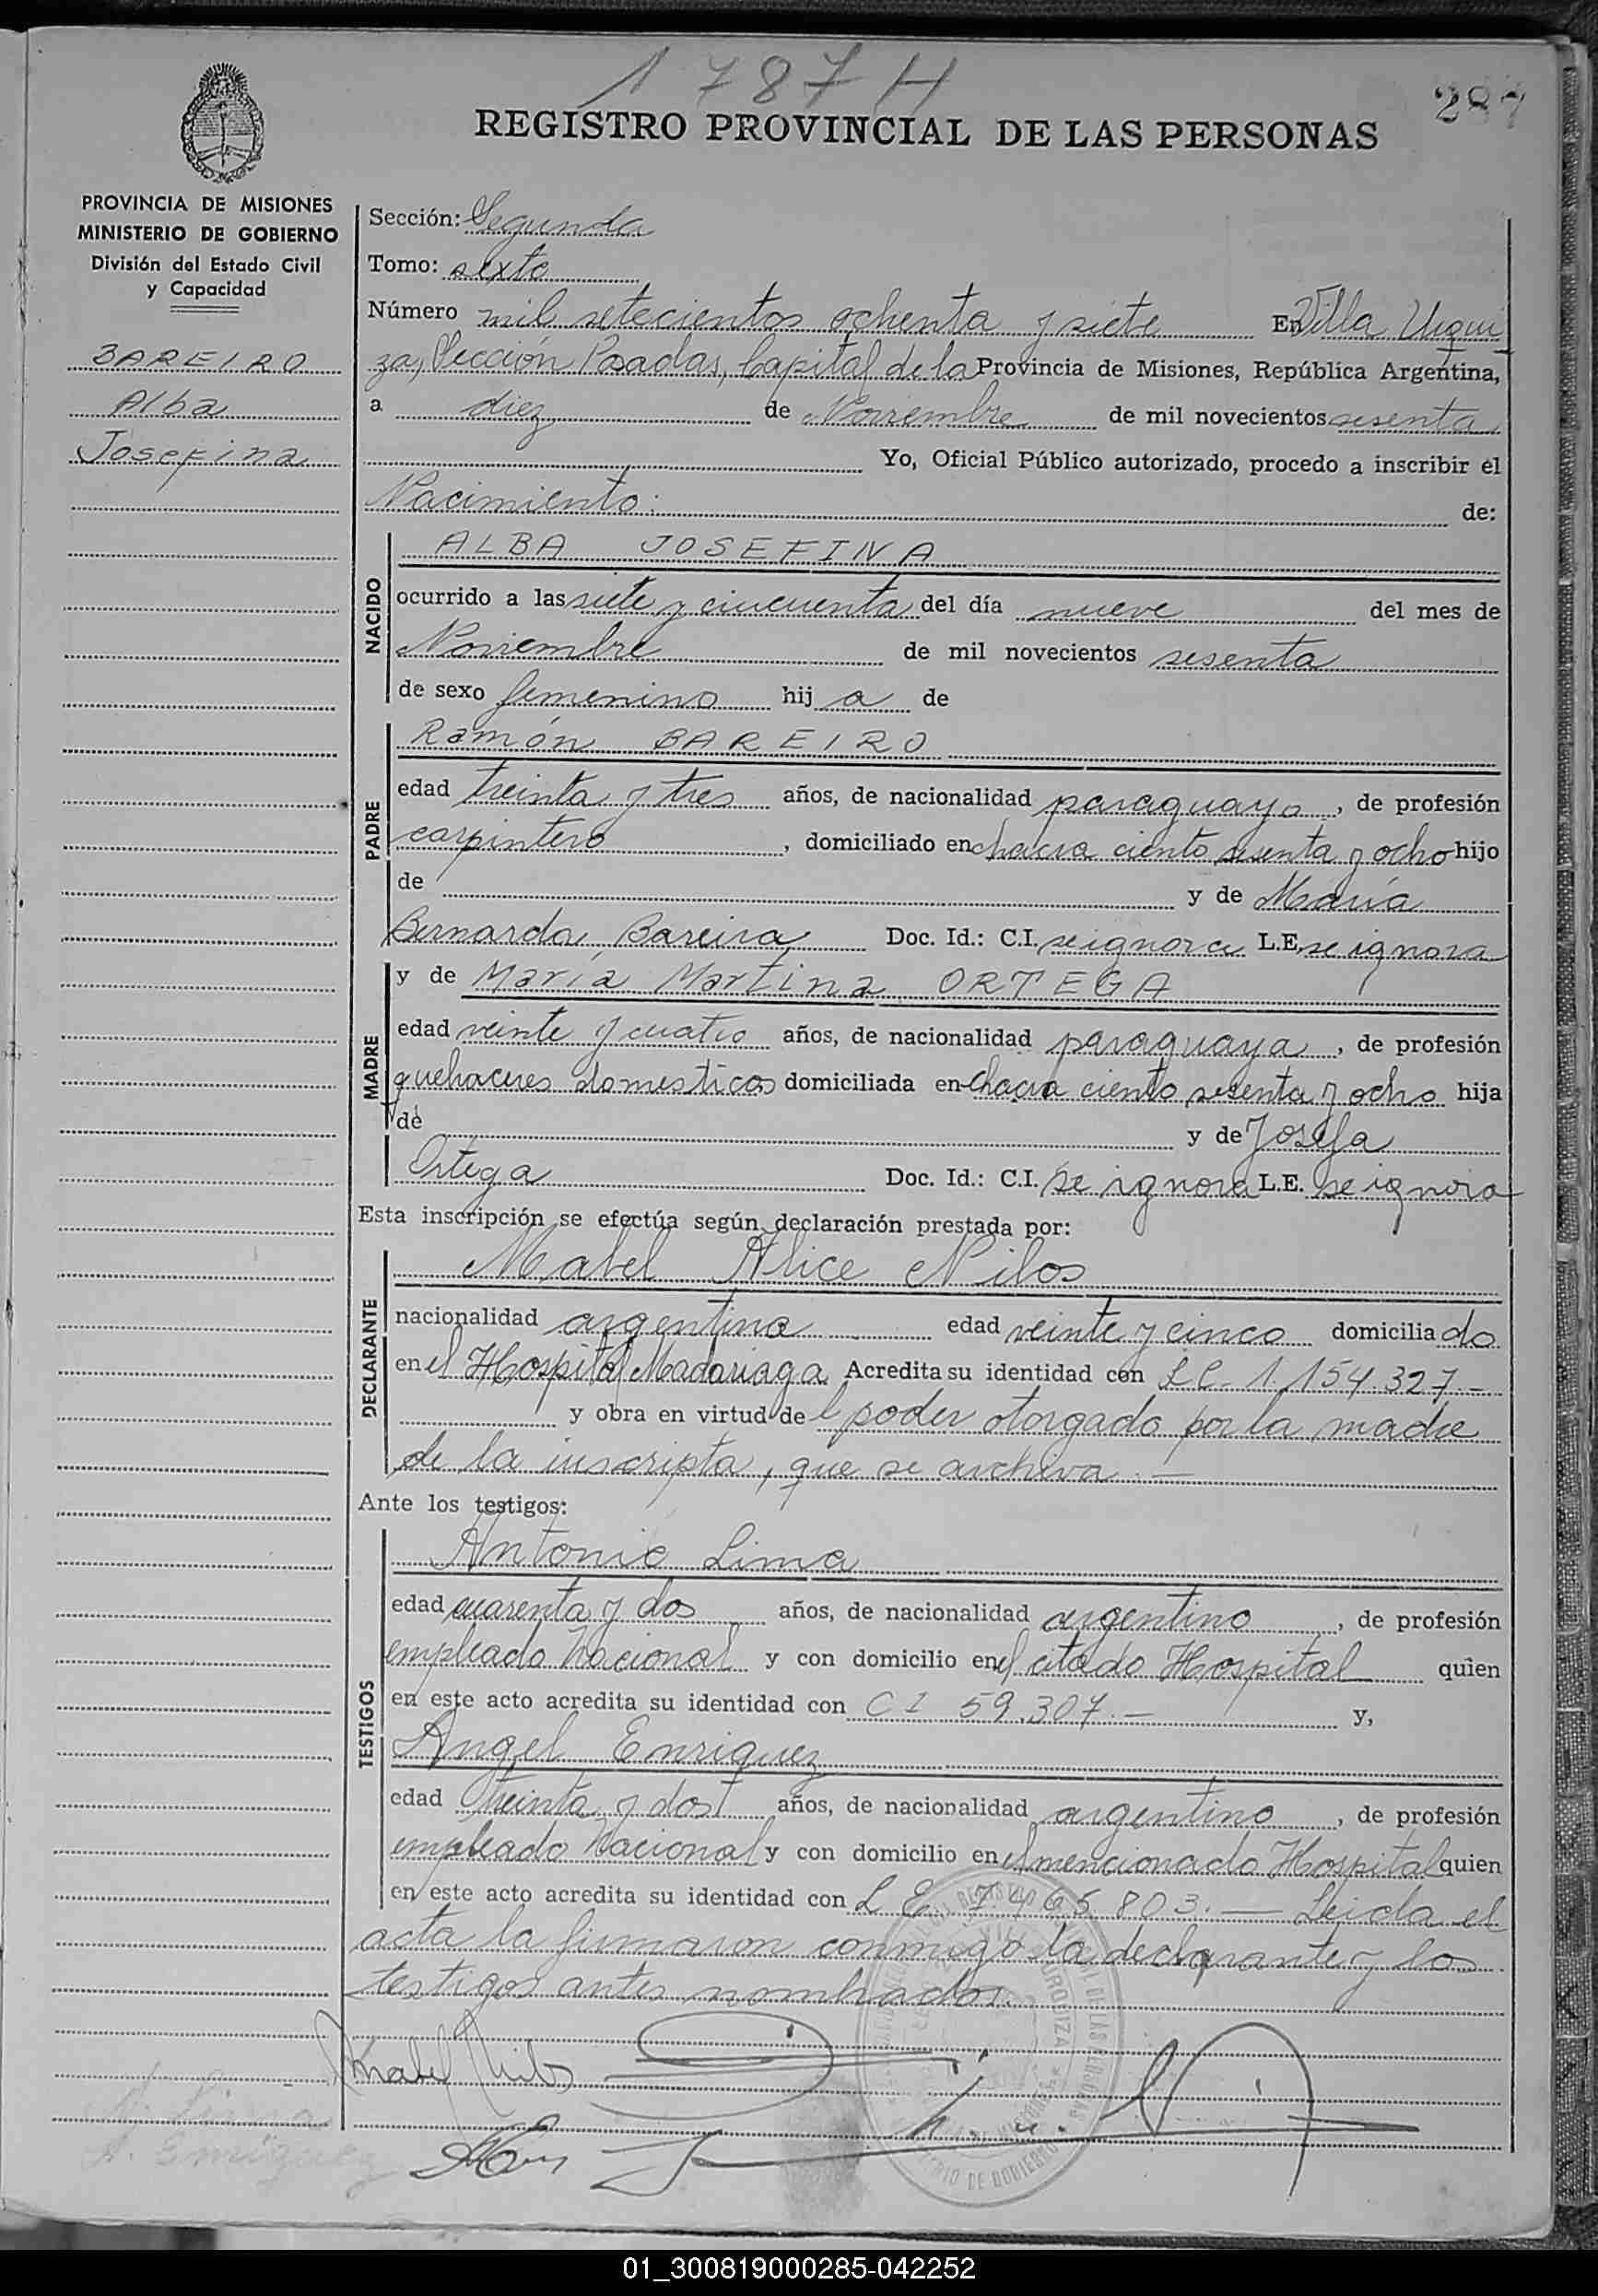 1787 H
287
REGISTRO PROVINCIAL DE LAS PERSONAS
PROVINCIA DE MISIONES
MINISTERIO DE GOBIERNO
División del Estado Civil
y Capacidad
BAREIRO
Alba
Josefina
Sección: Segunda
Tomo: sexto
Número mil setecientos ochenta y siete En Villa Urqui
za, Sección Posadas, Capital de la Provincia de Misiones, República Argentina,
a diez de Noviembre de mil novecientos sesenta
Yo, Oficial Público autorizado, procedo a inscribir el
Nacimiento: de:
NACIDO
ALBA JOSEFINA
ocurrido a las siete y cincuenta del día nueve del mes de
Noviembre de mil novecientos sesenta
de sexo femenino hij a de
PADRE
Ramón BAREIRO
edad treinta y tres años, de nacionalidad paraguayo, de profesión
carpintero, domiciliado en chacra ciento sesenta y ocho hijo
de y de María
Bernarda Bareira Doc. Id.: C.I. se ignora L.E. se ignora
MADRE
y de María Martina ORTEGA
edad veinte y cuatro años, de nacionalidad paraguaya, de profesión
quehaceres domesticos domiciliada en chacra ciento sesenta y ocho hija
de y de Josefa
Ortega Doc. Id.: C.I. se ignora L.E. se ignora
Esta inscripción se efectúa según declaración prestada por:
DECLARANTE
Mabel Alice Nilos
nacionalidad argentina edad veinte y cinco domicilia do
en el Hospital Madariaga Acredita su identidad con L C - 1.154.327.-
y obra en virtud de l poder otorgado por la madre
de la inscripta, que se archiva.-
Ante los testigos:
TESTIGOS
Antonio Lima
edad cuarenta y dos años, de nacionalidad argentino, de profesión
empleado Nacional y con domicilio en el citado Hospital quien
en este acto acredita su identidad con C I 59.307.- y,
Angel Enriquez
edad treinta y dos años, de nacionalidad argentino, de profesión
empleado Nacional y con domicilio en el mencionado Hospital quien
en este acto acredita su identidad con L E 7.465.803.- Leida el
acta la firmaron conmigo la declarante y los
testigos antes nombrados.
Mabel Nilos
A. Lima
A. Enriquez
01_300819000285-042252